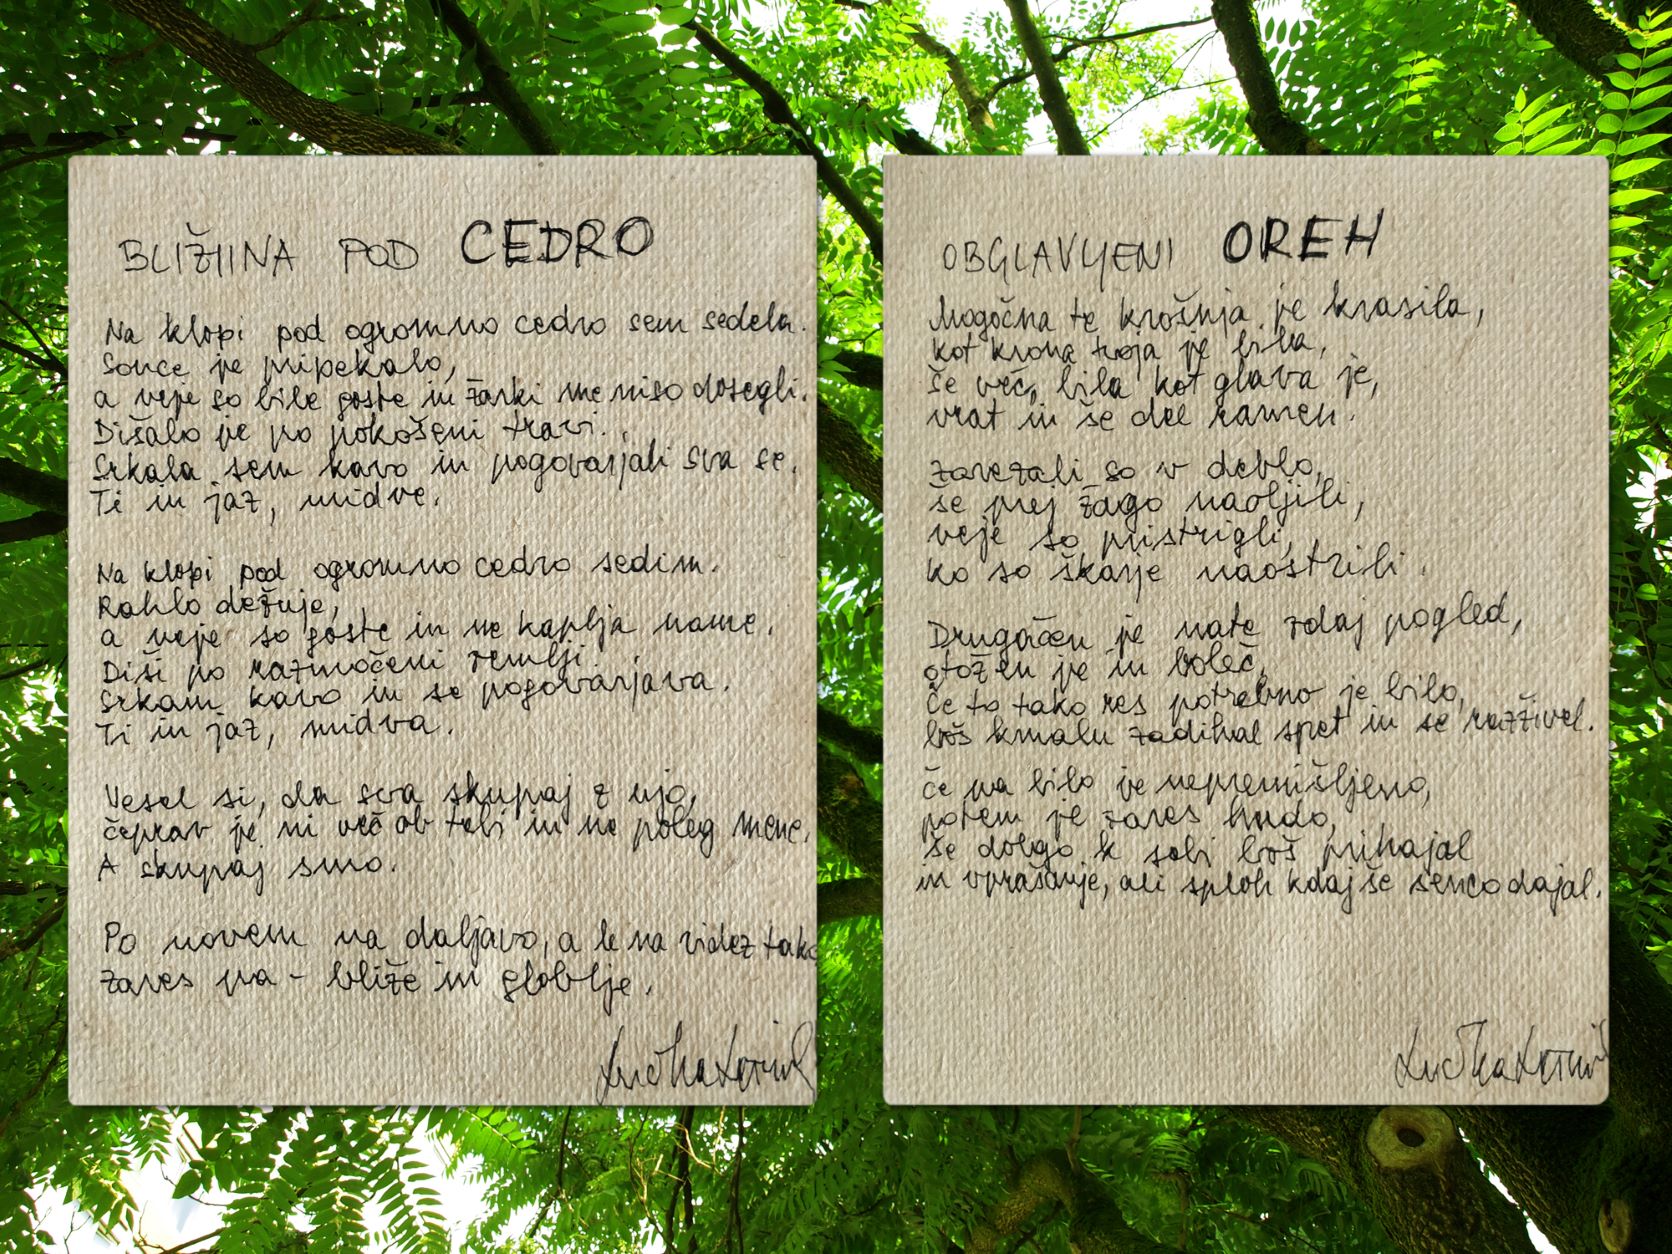 BLIŽIINA POD CEDRO
Na klopi pod ogromno cedro sem sedela.
Sonce je pripekalo,
a veje so bile goste in žarki me niso dosegli.
Dišalo je po pokošeni travi.
Srkala sem kavo in pogovarjali sva se.
Ti in jaz, midve.
Na klopi pod ogromno cedro sedim.
Rahlo dežuje,
a veje so goste in ne kaplja name.
Diši po razmočeni zemlji.
Srkam kavo in se pogovarjava.
Ti in jaz, midva.
Vesel si, da sva skupaj z njo,
čeprav je ni več ob tebi in ne poleg mene.
A skupaj smo.
Po novem na daljavo, a le na videz tako
zares pa - bliže in globlje.
OBGLAVLJENI OREH
Mogočna te krošnja je krasila,
kot krona tvoja je bila,
še več, bila kot glava je,
vrat in še del ramen.
Zarezali so v deblo,
še prej žago naoljili,
veje so pristrigli,
ko so škarje naostrili.
Drugačen je nate zdaj pogled,
otožen je in boleč,
Če to tako res potrebno je bilo,
boš kmalu zadihal spet in se razživel.
Če pa bilo je nepremišljeno,
potem je zares hudo,
še dolgo k sebi boš prihajal
in vprašanje, ali sploh kdaj še senco dajal.